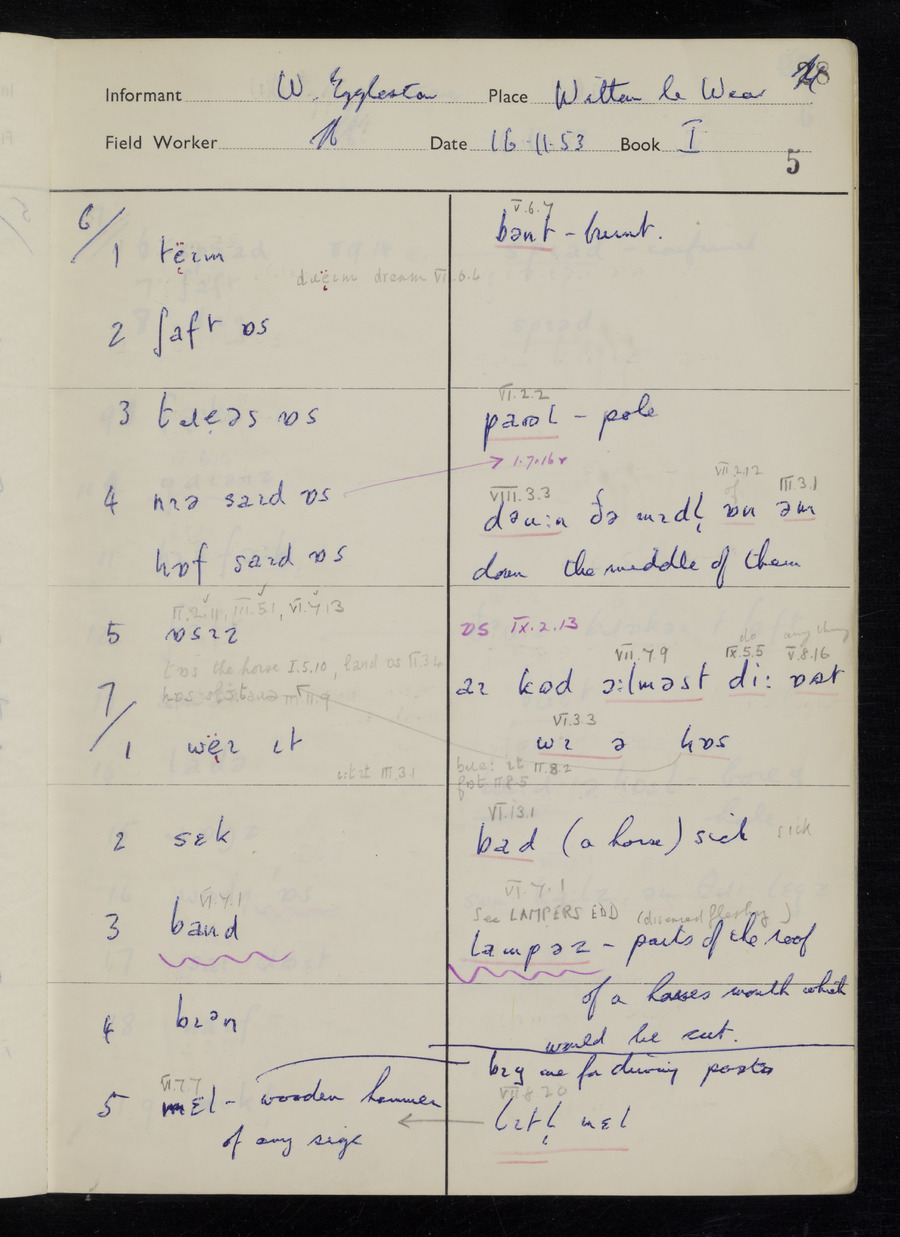 28
Informant W. Eggleston Place Witton le Wear
Field Worker Date 16.11.53 Book I
5
6/
1 tëɪm
dɹëɪm dream VI.6.4
V.6.7
bɒnt - burnt.
2 ʃaft ɒs
3 tɹẹəs ɒs
VI.2.2
paʊl - pole
1.7.16
4 nɪə saɪd ɒs
hɒf saɪd ɒs
VIII.3.3 VII.2.12 of III.3.1
dəu:n ðə mɪdl̩ ɒn əm
down the middle of them
II.2.11, III.5.1, VI.4.13
5 ɒsɪz
tɒs the horse I.5.10, land ɒs
ɒs IX.2.13
VII.7.9 IX.5.5 do V.8.16 anything
aɪ kəd ə:lməst di: ɒʊt
7/
1 wëɪ ɪt
III.3.1
VI.3.3
wɪ ə hɒs
II.8.2
II.8.5
2 sɛk
VI.13.1
bad (a horse) sick sick
VI.7.1
3 band
VI.7.1
see LAMPERS EDD
lampəz - parts of the roof
of a horses mouth which
would be cut.
4 bɪən
big one for driving posts
VI.7.7
5 mɛl - wooden hammer
of any size
VII.8.20
lɪtl̩ mɛl